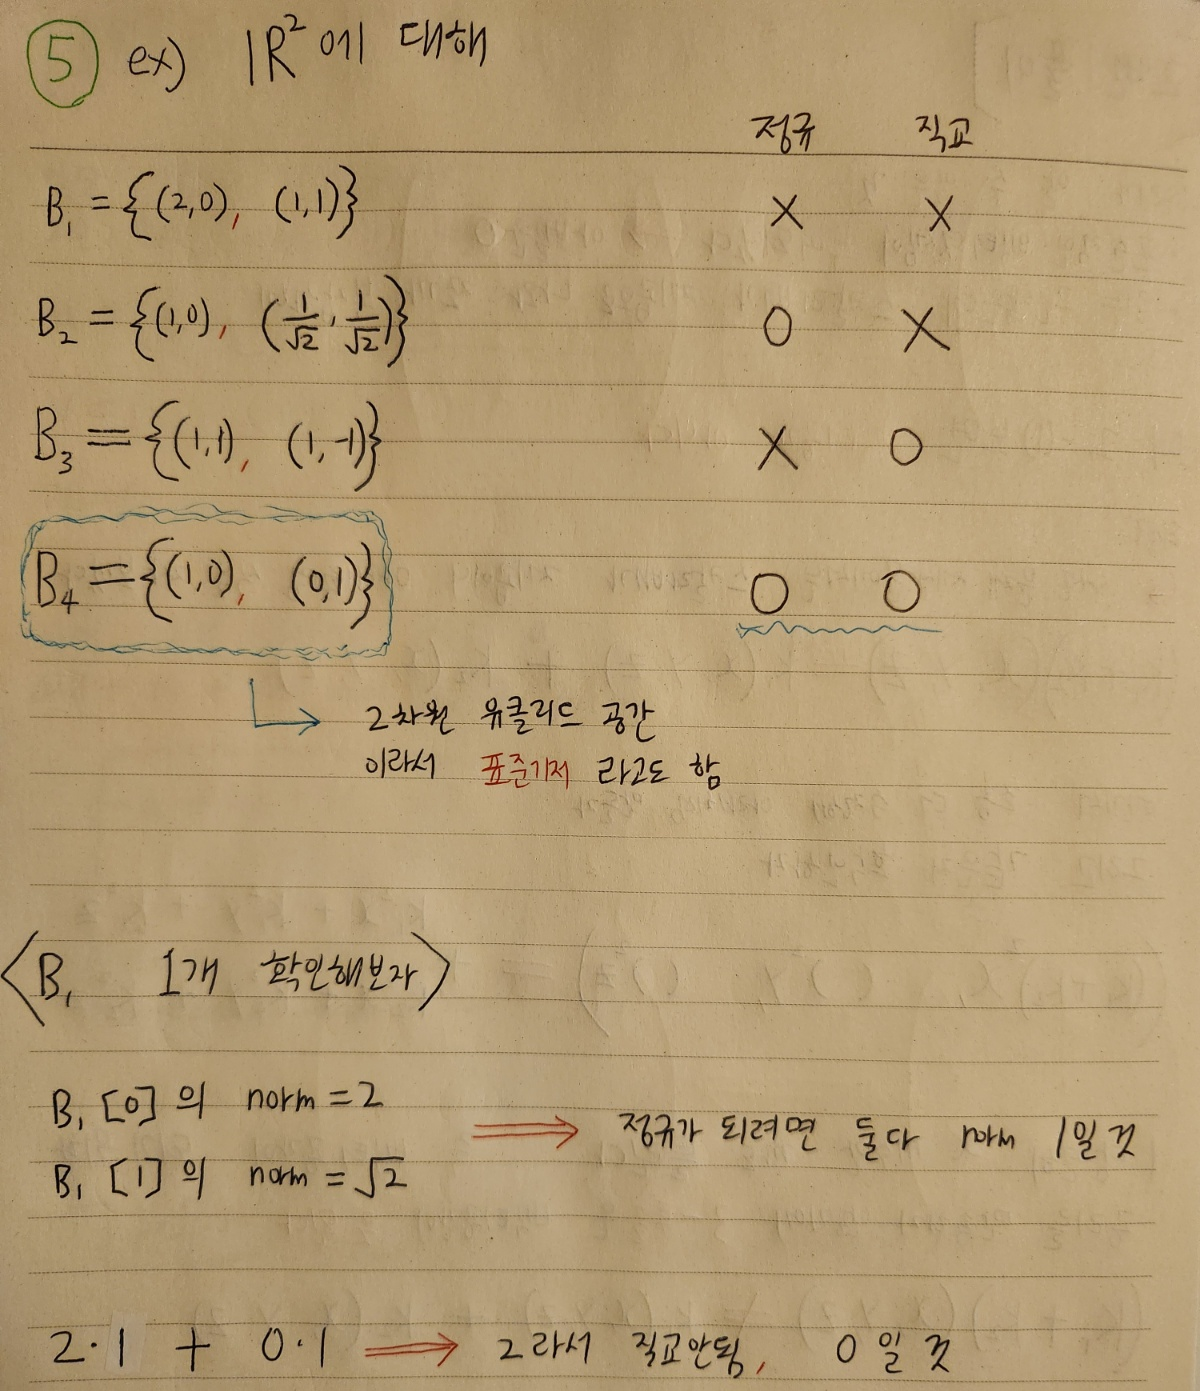 ⑤ ex) ℝ²에 대해
정규 직교
B₁ = {(2,0), (1,1)} X X
B₂ = {(1,0), (1/√2, 1/√2)} O X
B₃ = {(1,1), (1,-1)} X O
B₄ = {(1,0), (0,1)} O O
2차원 유클리드 공간
이라서 표준기저 라고도 함
<B₁ 1개 확인해보자>
B₁ [0] 의 norm = 2
⇒ 정규가 되려면 둘다 norm 1일 것
B₁ [1] 의 norm = √2
2·1 + 0·1 ⇒ 2라서 직교안됨, 0일 것